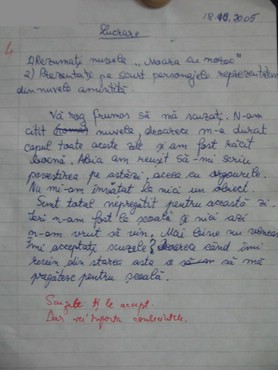 18.10.2005
Lucrare
4
1) Rezumați nuvela „Moara cu noroc"
2) Prezentați pe scurt personajele reprezentative
din nuvela amintită.
Vă rog frumos să mă scuzați. N-am
citit nuvela, deoarece m-a durut
capul toate aceste zile și am fost răcit
bocnă. Abia am reușit să-mi scriu
povestirea pe astăzi, aceea cu
Nu mi-am învățat la nici un obiect.
Sunt total nepregătit pentru această zi.
Ieri n-am fost la școală și nici azi
n-am vrut să vin. Mai bine nu veneam.
Îmi acceptați scuzele? când îmi
revin din starea asta o să mă
pregătesc pentru școală.
Scuzele ți le accept.
Dar vei suporta consecințele.